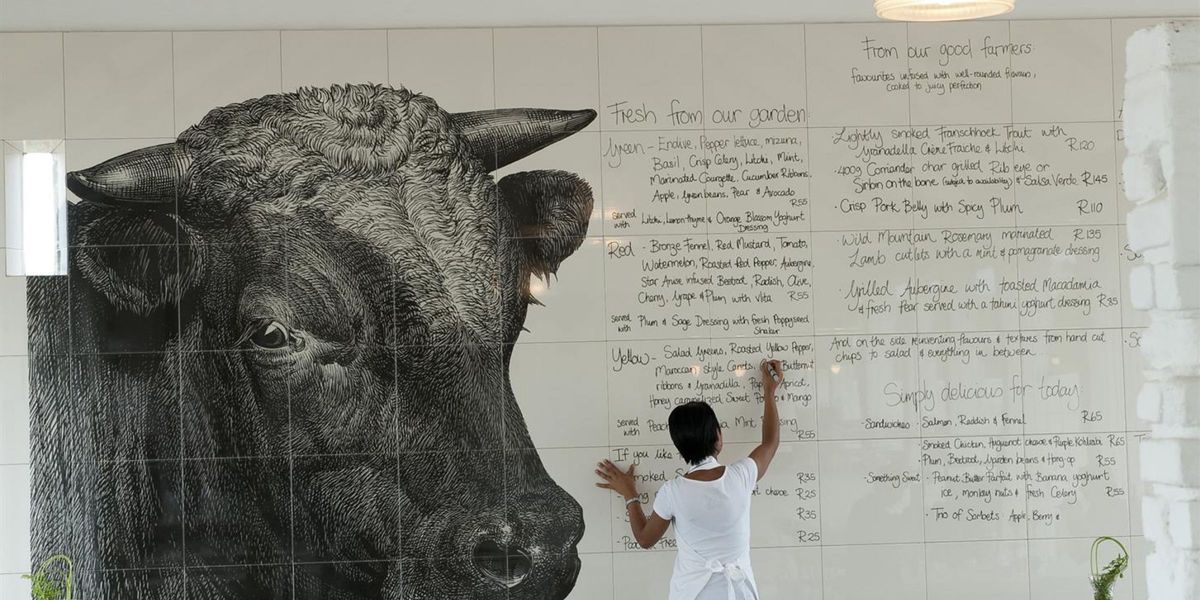 Fresh from our garden
Green - Endive, Pepper lettuce, mizuna,
Basil, Crisp Celery, Litchi, Mint,
Marinated Courgette, Cucumber Ribbons,
Apple, green beans, Pear & Avocado
R55
served with Litchi, Lemon thyme & Orange Blossom Yoghurt
Dressing
Red - Bronze Fennel, Red Mustard, Tomato,
Watermelon, Roasted Red Pepper, Aubergine,
Star Anise infused Beetroot, Radish, Olive,
Cherry, Grape & Plum with vita R55
served with Plum & Sage Dressing with fresh Poppyseed
Shaker
Yellow - Salad greens, Roasted Yellow Pepper,
Maroccan style Carrots, Butternut
ribbons & Granadilla, Apricot,
Honey caramelized Sweet & Mango
served with Mint
R55
If you like
smoked R35
R25
R35
R25
From our good farmers:
favourites infused with well-rounded flavours,
cooked to juicy perfection
Lightly smoked Franschhoek Trout with
Granadella Crème Fraiche & Litchi R120
· 400g Comander char grilled Rib eye or
Sirloin on the bone (subject to availability) & Salsa Verde R145
· Crisp Pork Belly with Spicy Plum R110
· Wild Mountain Rosemary marinated R135
Lamb cutlets with a mint & pomegranate dressing
· Grilled Aubergine with toasted Macadamia
& fresh Pear served with a tahini yoghurt dressing R35
And on the side reinventing flavours & textures from hand cut
chips to salad & everything in between...
Simply delicious for today:
Sandwiches · Salmon, Raddish & Fennel R65
· Smoked Chicken, Huguenot cheese & Purple Kohlrabi R65
· Plum, Beetroot, Garden beans & R55
· Something Sweet · Peanut Butter Parfait with Banana yoghurt
ice, monkey nuts & fresh Celery R55
· Trio of Sorbets: Apple, Berry &